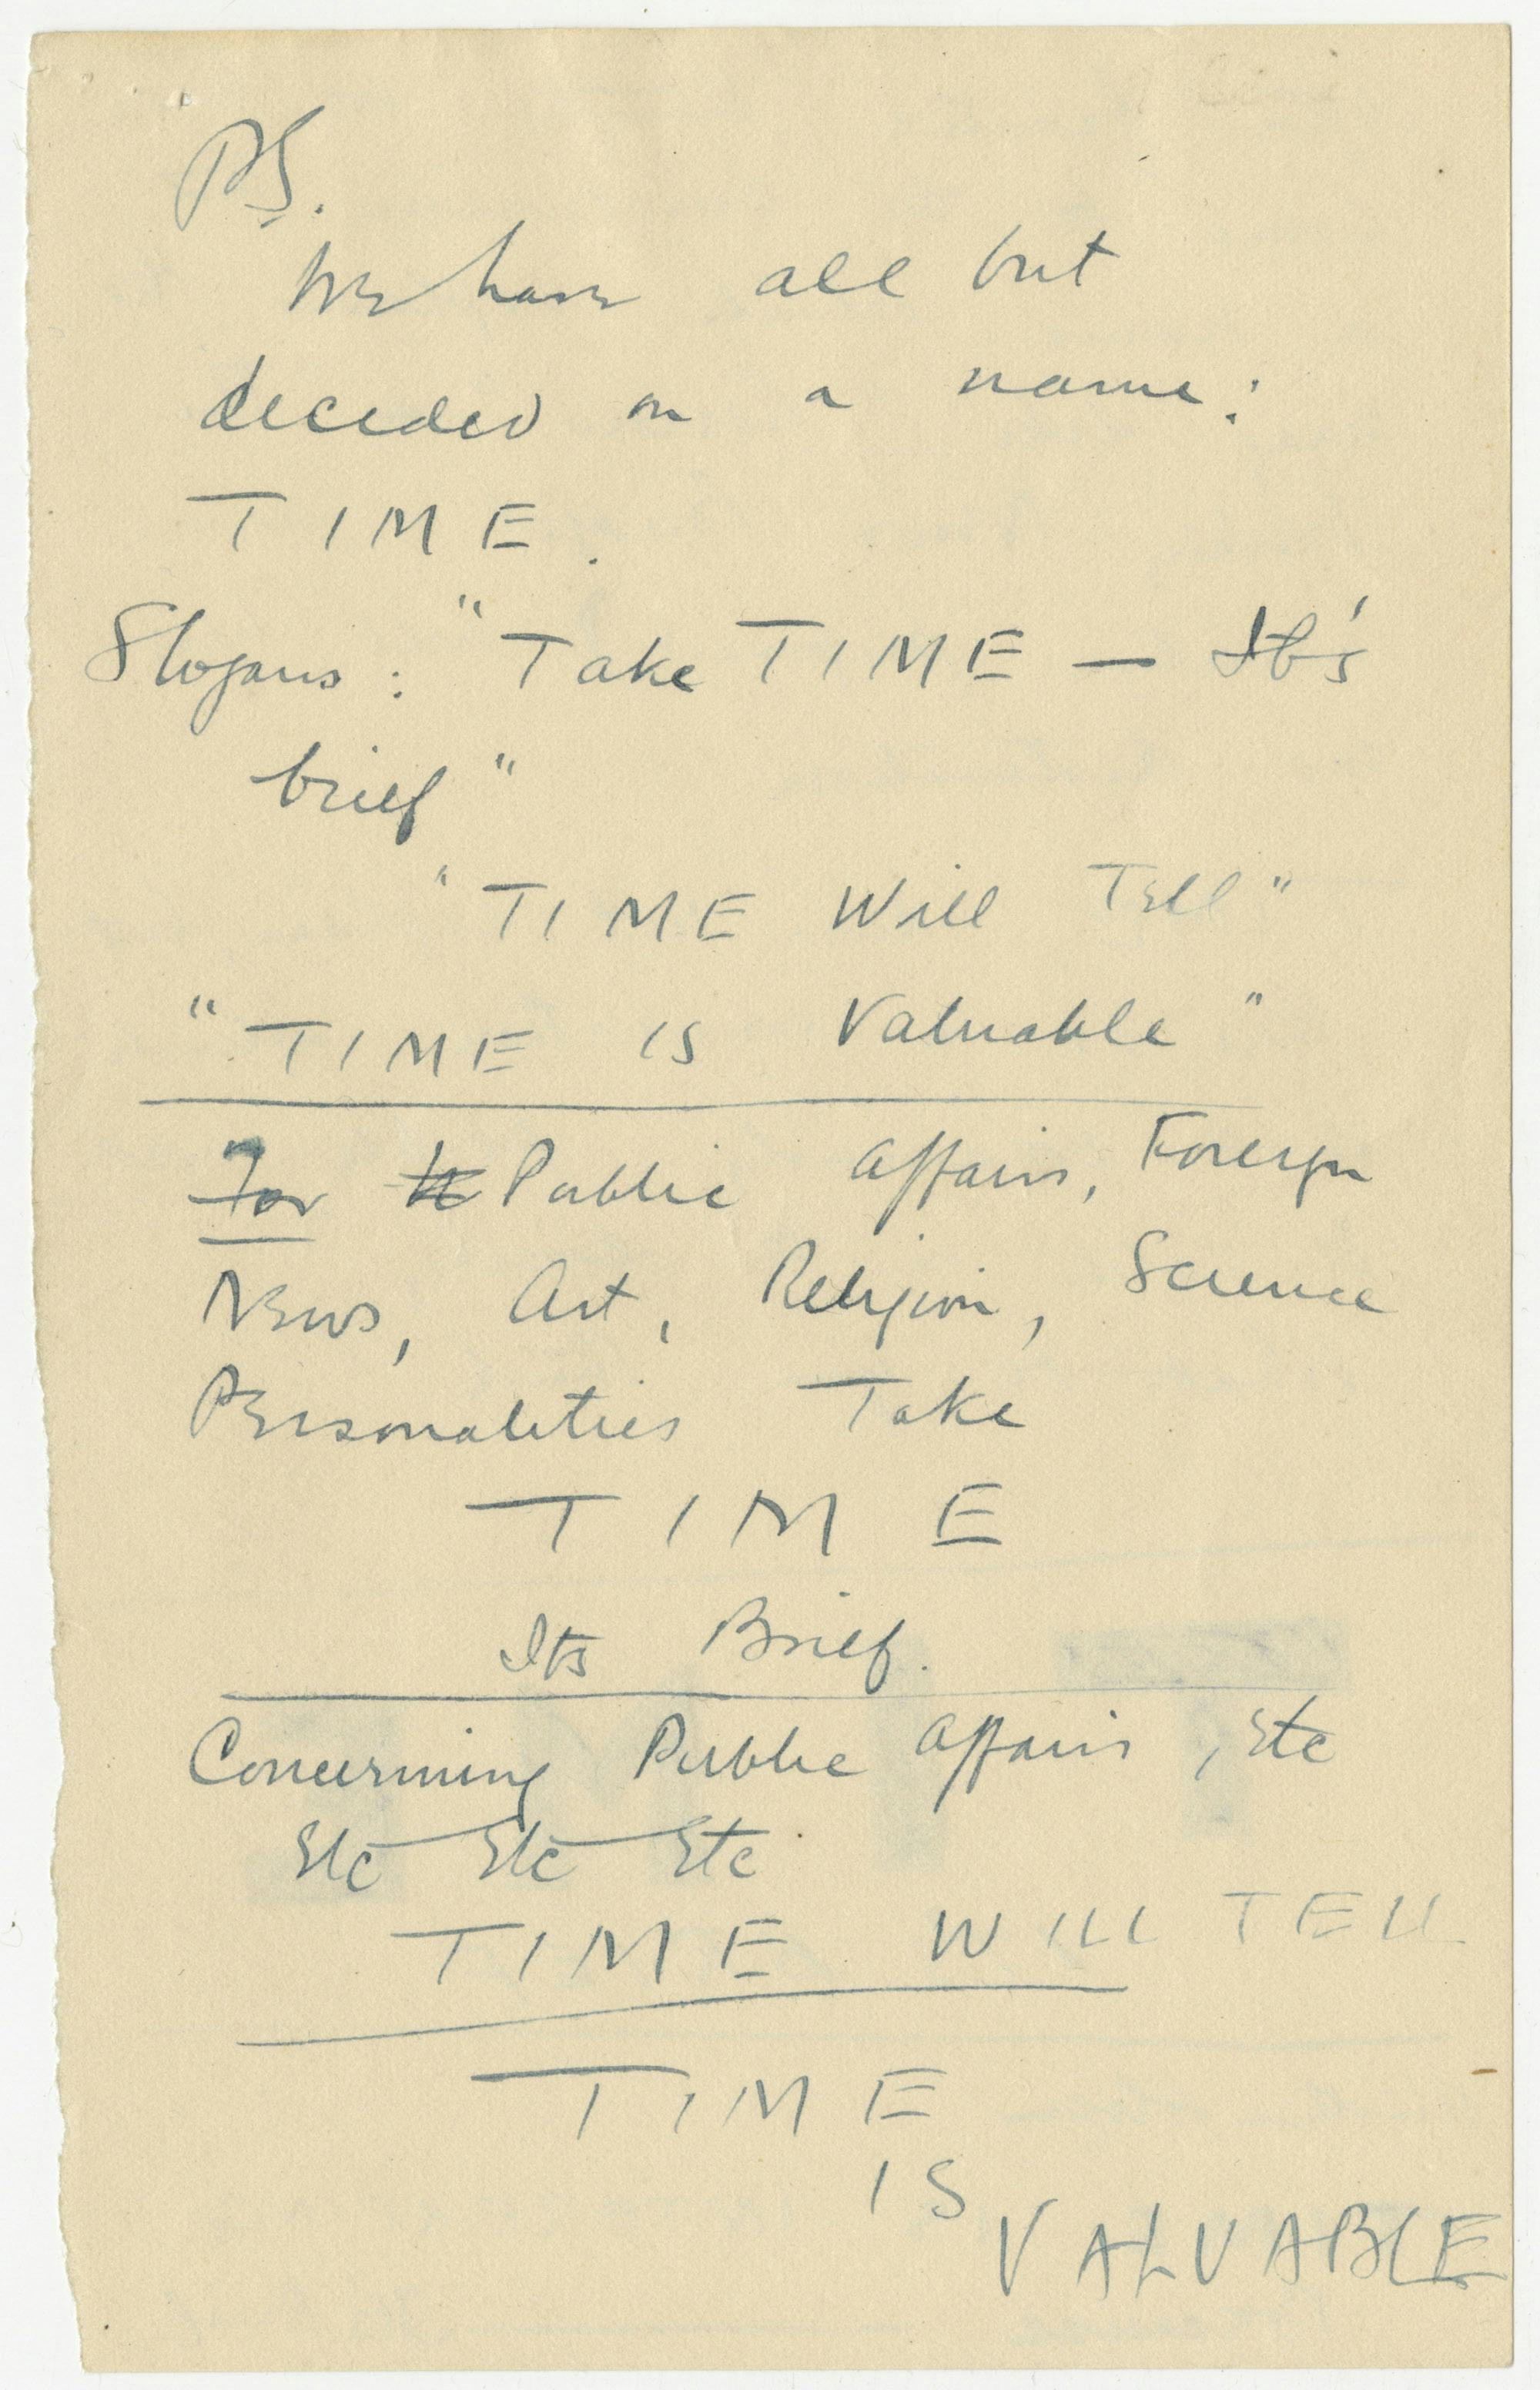 PS.
We have all but
decided on a name:
TIME.
Slogans: "Take TIME — It's
brief"
"TIME Will Tell"
"TIME is Valuable"
For Public Affairs, Foreign
News, Art, Religion, Science
Personalities Take
TIME
Its Brief.
Concerning Public Affairs, Etc
Etc Etc Etc
TIME WILL TELL
TIME
IS
VALUABLE